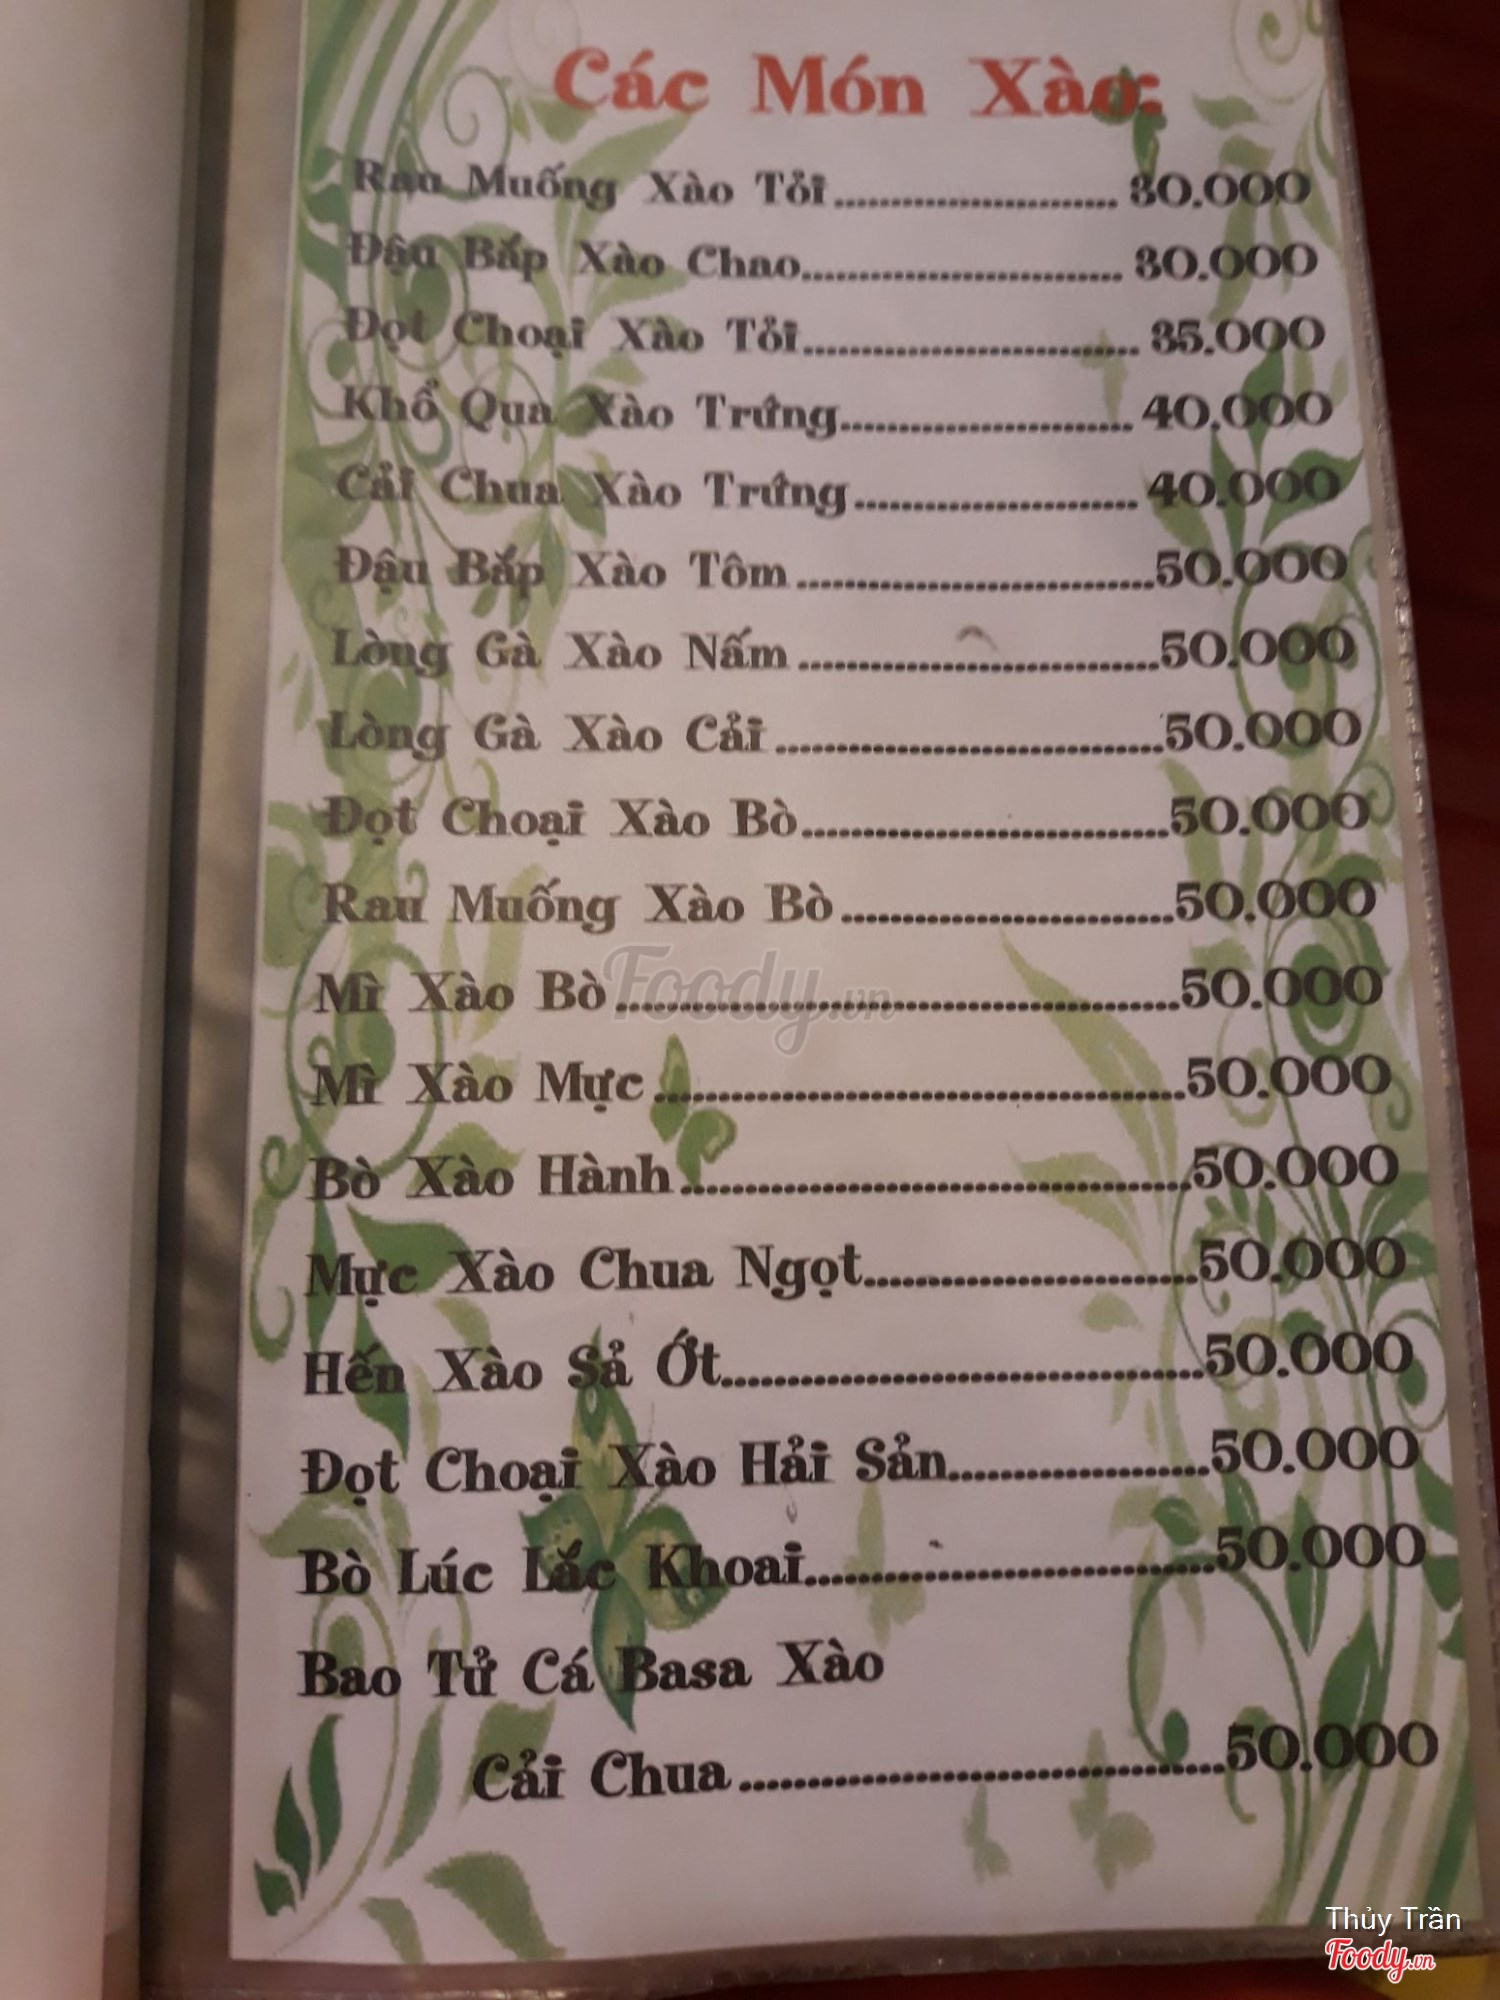 Các Món Xào:
Rau Muống Xào Tỏi........................ 30.000
Đậu Bắp Xào Chao........................... 30.000
Đọt Choại Xào Tỏi............................ 35.000
Khổ Qua Xào Trứng......................... 40.000
Cải Chua Xào Trứng........................ 40.000
Đậu Bắp Xào Tôm ..............................50.000
Lòng Gà Xào Nấm ..............................50.000
Lòng Gà Xào Cải ................................50.000
Đọt Choại Xào Bò..............................50.000
Rau Muống Xào Bò ...........................50.000
Mì Xào Bò..............................................50.000
Foody.vn
Mì Xào Mực ...........................................50.000
Bò Xào Hành.........................................50.000
Mực Xào Chua Ngọt..........................50.000
Hến Xào Sả Ớt.....................................50.000
Đọt Choại Xào Hải Sản....................50.000
Bò Lúc Lắc Khoai...............................50.000
Bao Tử Cá Basa Xào
Cải Chua.....................................50.000
Thủy Trần
Foody.vn